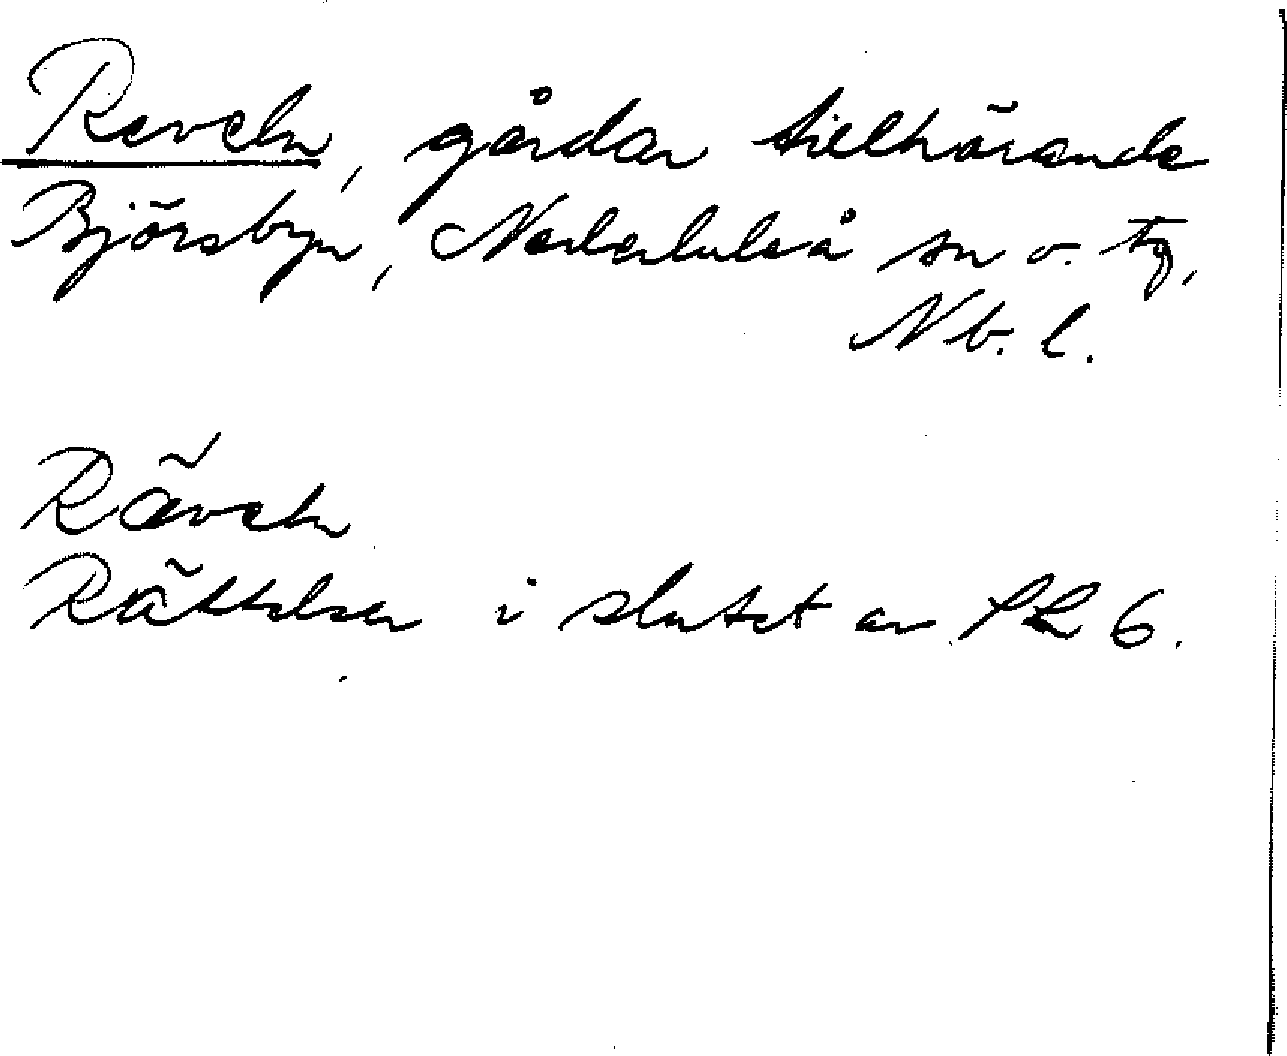 Reveln, gårdar tillhörande
Björsbyn, Nederluleå sn o. tg,
Nb. l.
Räveln
Rättelser i slutet av PL 6.